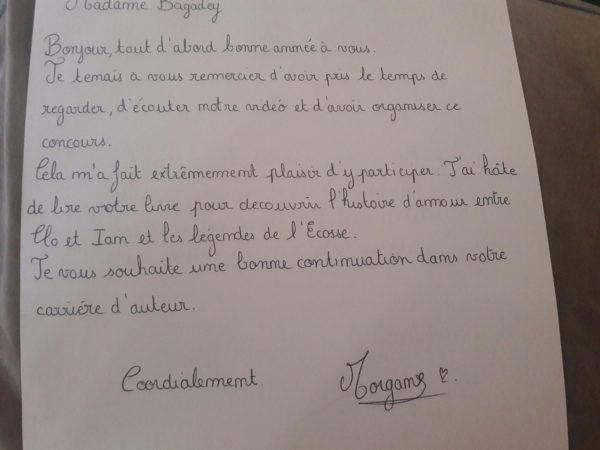 Madame Bagadey
Bonjour, tout d'abord bonne année à vous.
Je tenais à vous remercier d'avoir pris le temps de
regarder, d'écouter notre vidéo et d'avoir organiser ce
concours.
Cela m'a fait extrêmement plaisir d'y participer. J'ai hâte
de lire votre livre pour decouvrir l'histoire d'amour entre
Clo et Ian et les légendes de l'Écosse.
Je vous souhaite une bonne continuation dans votre
carriére d'auteur.
Coordialement.
Morgane